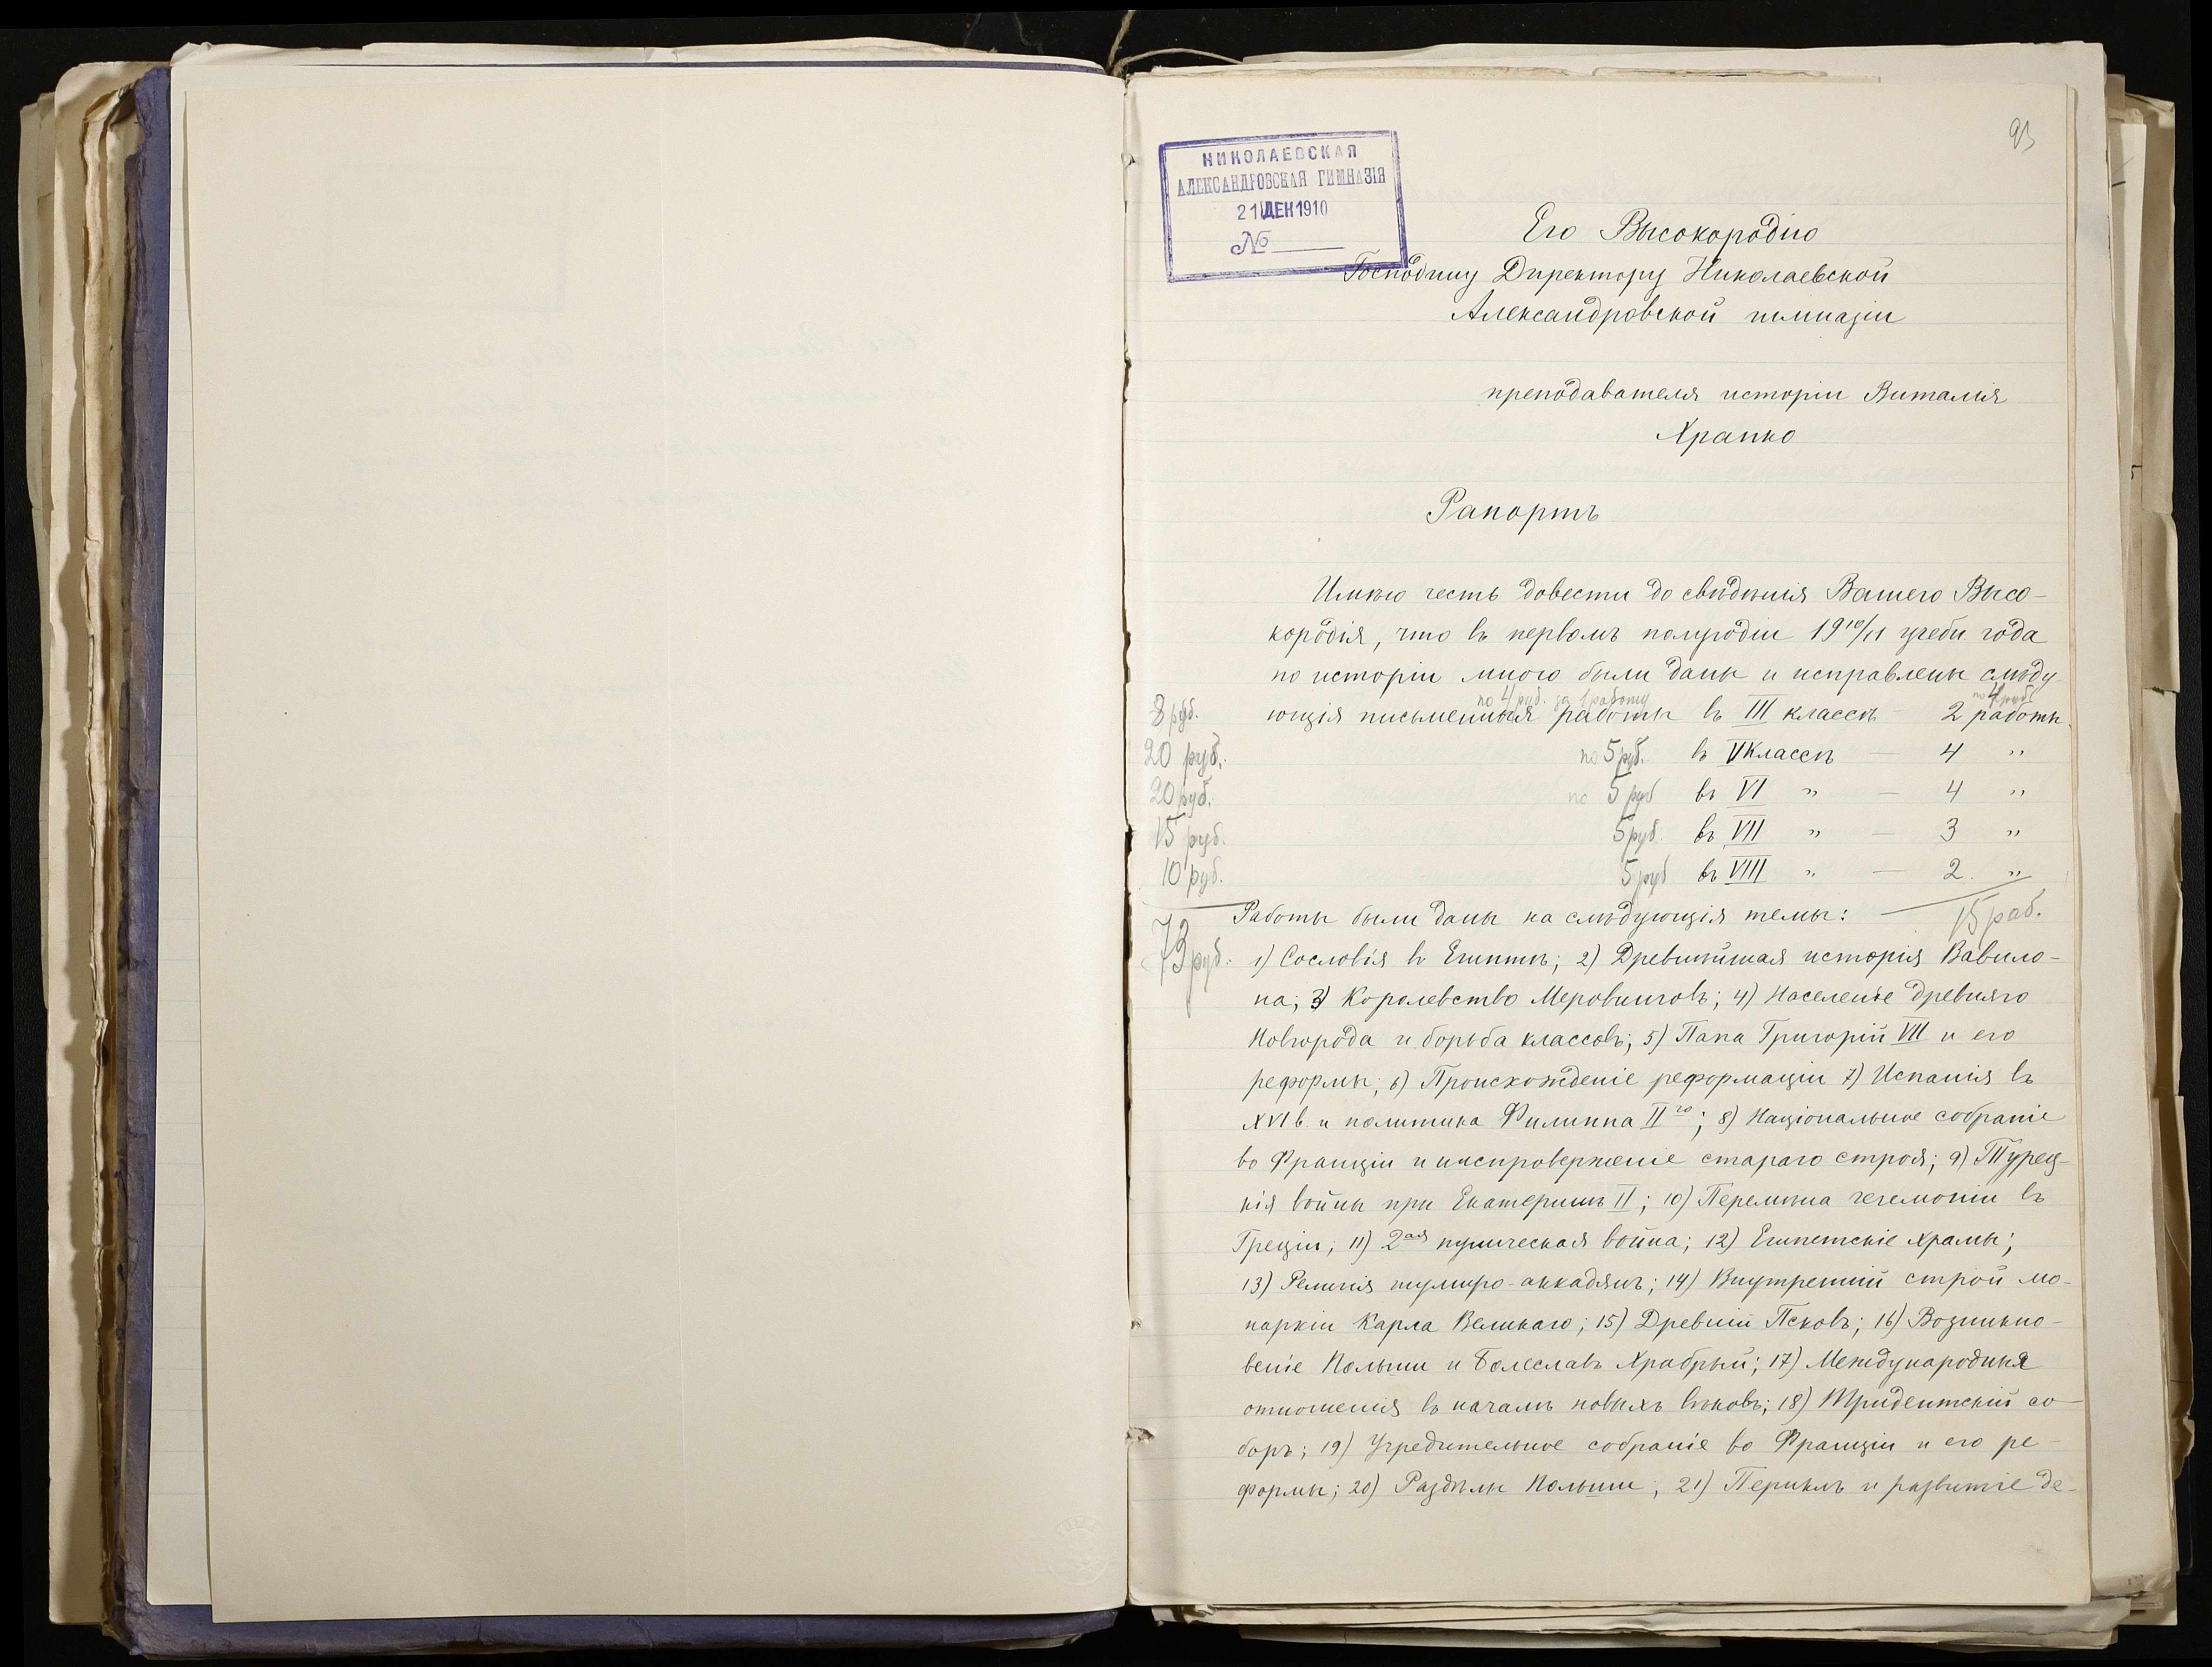 93
НИКОЛАЕВСКАЯ
АЛЕКСАНДРОВСКАЯ ГИМНАЗІЯ
21 ДЕК 1910
№
Его Высокородію
Господину Директору Николаевской
Александровской гимназіи
преподавателя исторіи Виталія
Храпко
Рапортъ
Имѣю честь довести до свѣдѣнія Вашего Высо-
кородія, что въ первомъ полугодіи 1910/11 учебн года
по исторіи мною были даны и исправлены слѣду
по 4 руб. за 1 работу по 4 руб.
8 руб. ющія письменныя работы въ III классѣ 2 работы
20 руб. по 5 руб. въ V классѣ — 4 "
20 руб. по 5 руб въ VI " — 4 "
15 руб. 5 руб. въ VII " — 3 "
10 руб. 5 руб въ VIII " — 2. "
Работы были даны на слѣдующія темы: — 15 раб.
73 руб. 1) Сословія въ Египтѣ; 2) Древнѣйшая исторія Вавило-
на; 3) Королевство Меровинговъ; 4) Населеніе древняго
Новгорода и борьба классовъ; 5) Папа Григорій VII и его
реформы; 6) Происхожденіе реформаціи 7) Испанія въ
XVI в. и политика Филиппа II го; 8) Національное собраніе
во Франціи и ниспроверженіе стараго строя; 9) Турец-
кія войны при Екатеринѣ II; 10) Перемѣна гегемоніи въ
Греціи; 11) 2ая пуническая война; 12) Египетскіе храмы;
13) Религія шумиро-аккадянъ; 14) Внутренній строй мо-
нархіи Карла Великаго; 15) Древній Псковъ; 16) Возникно-
веніе Польши и Болеславъ Храбрый; 17) Международныя
отношенія въ началѣ новыхъ вѣковъ; 18) Тридентскій со-
боръ; 19) Учредительное собраніе во Франціи и его ре-
формы; 20) Раздѣлы Польши; 21) Периклъ и развитіе де-